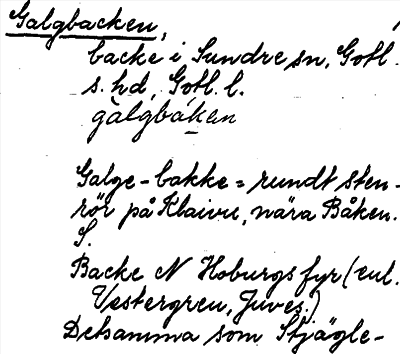 Galgbacken,
backe i Sundre sn, Gotl.
s. hd, Gotl. l.
gàlgbákan
Galge-bakke = rundt sten-
rör på Klaivu, nära Båken.
S.
Backe N Hoburgs fyr (enl.
Vestergren, Juves.)
Detsamma som Stjägle-